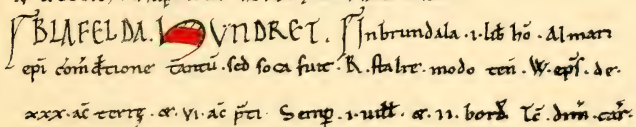 BLAFELDA. HVNDRET. In brundala .i. lib hō. Almari
epi cōmdatione tantū. sed soca fuit. R. stalre. modo ten. W. epſ. de.
xxx. ac terre. & .vi. ac pti. Semp .i. uill. & .ii. bord. Tc̄. dim̄. car.